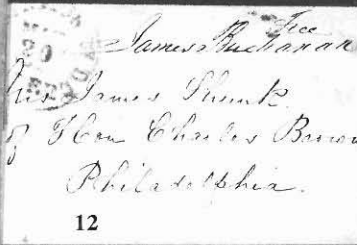 Free
James Buchanan
James Shunk
Hon Charles Brown
Philadelphia.
12